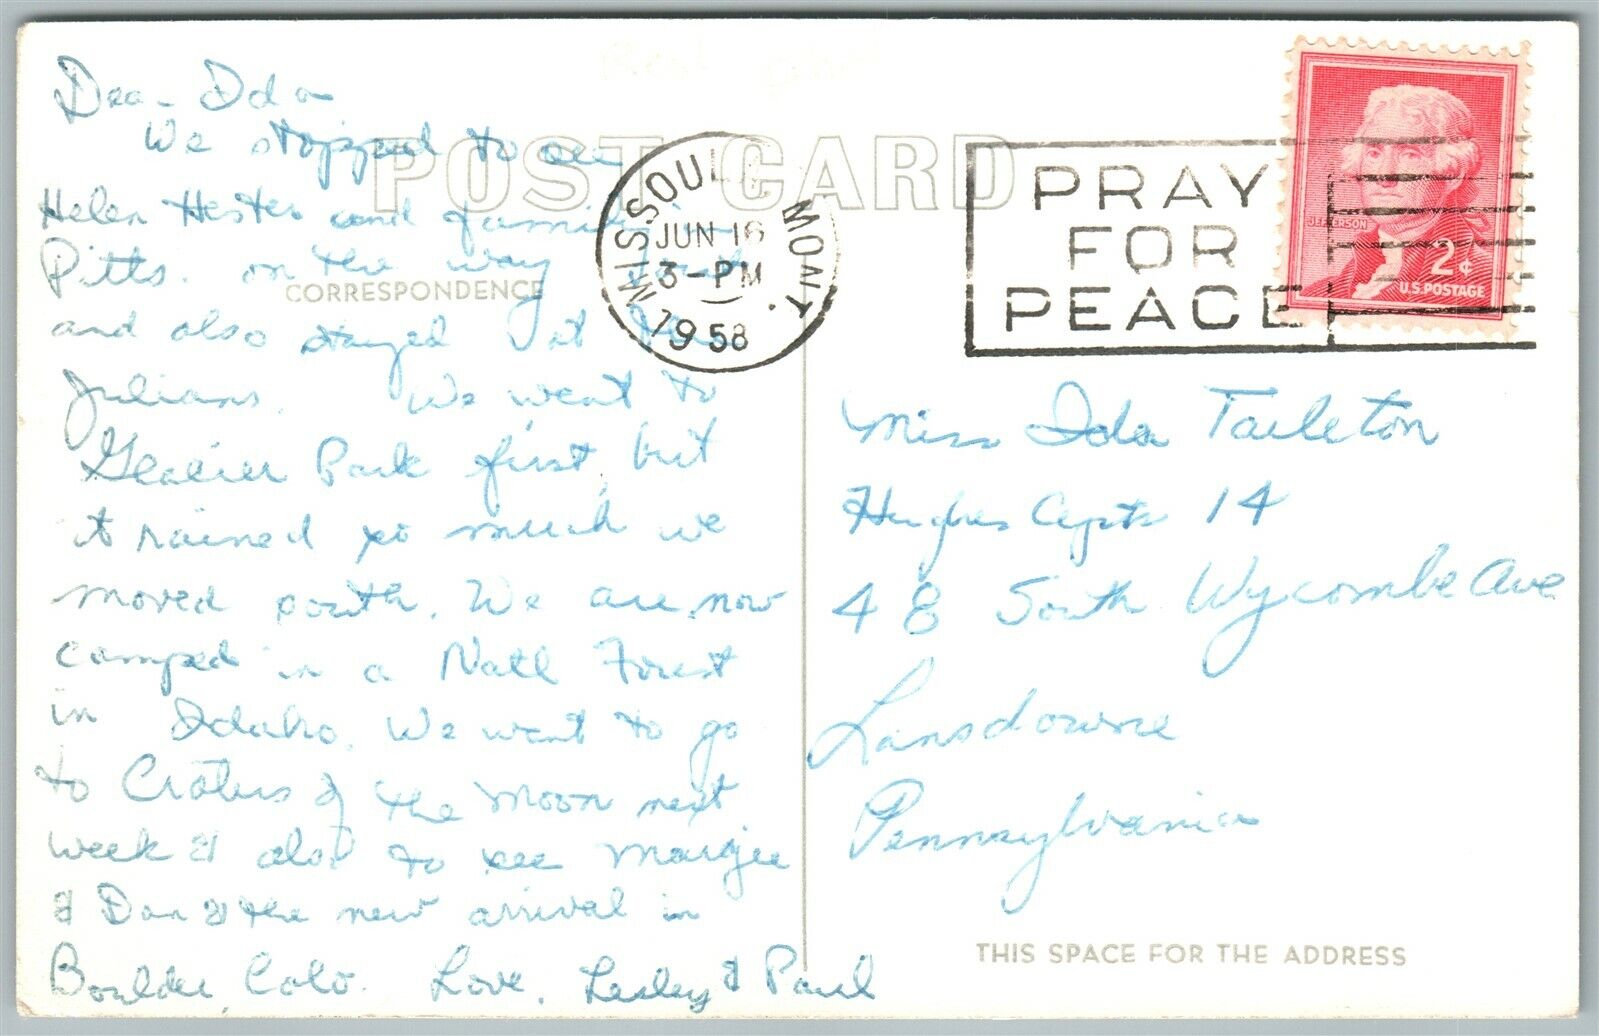 Dear Ida
We stopped to see
Helen Hester and family in
Pitts. on the way
and also stayed at the
Julians. We went to
Glacier Park first, but
it rained so much we
moved south. We are now
camped in a Natl Forest
in Idaho. We want to go
to Craters of the Moon next
week & also to see Margie
& Don & the new arrival in
Boulder, Colo. Love, Lesley & Paul
POST CARD
CORRESPONDENCE
MISSOULA MONT.
JUN 16
3-PM
1958
PRAY
FOR
PEACE
JEFFERSON
2¢
U.S. POSTAGE
Miss Ida Tarleton
Hughes Apts 14
48 South Wycombe Ave
Lansdowne
Pennsylvania
THIS SPACE FOR THE ADDRESS